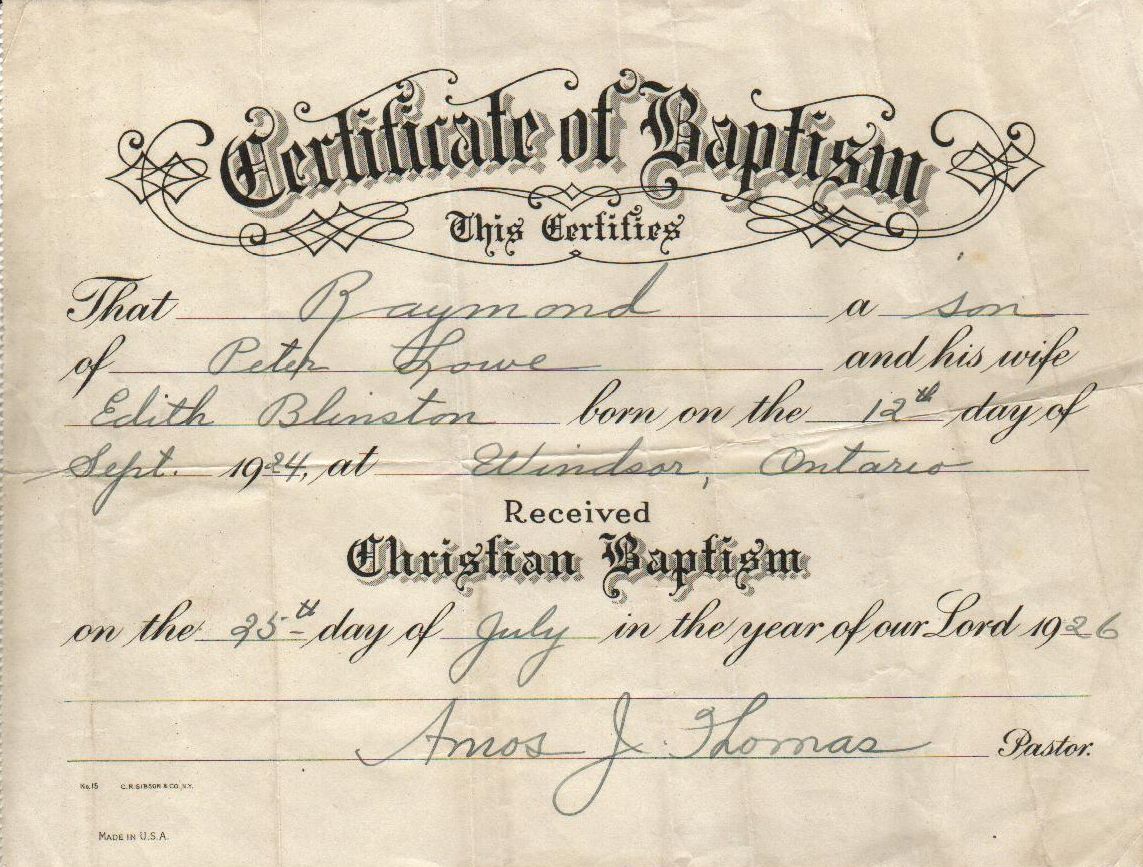 Certificate of Baptism
This Certifies
That Raymond a son
of Peter Lowe and his wife
Edith Blinston born on the 12th day of
Sept. 1924, at Windsor, Ontario
Received
Christian Baptism
on the 25th day of July in the year of our Lord 1926
Amos J. Thomas Pastor.
No.15 C.R. GIBSON & CO. N.Y.
MADE IN U.S.A.